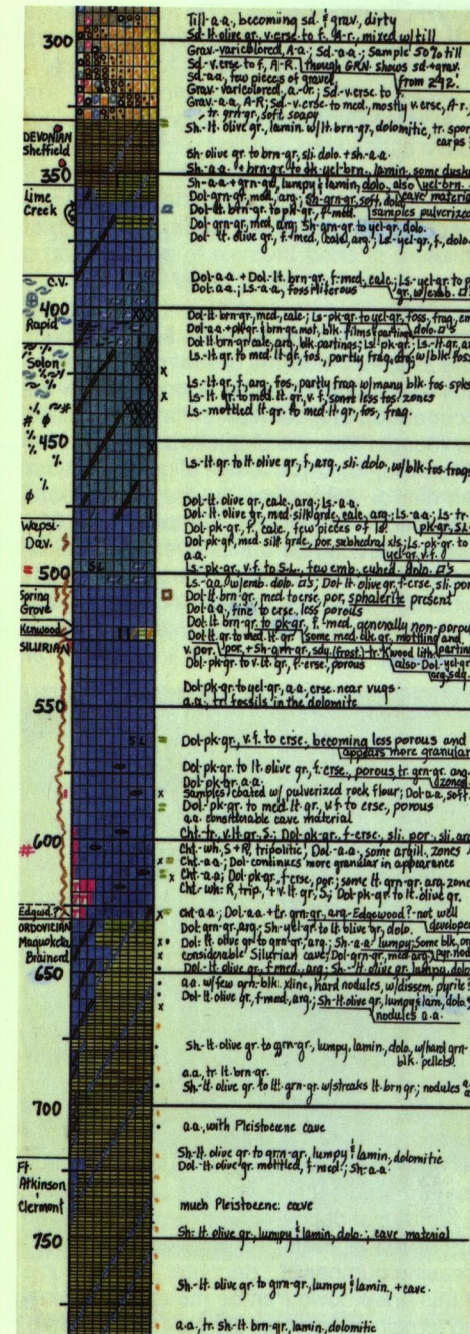 Till-a.a., becoming sd. & grav., dirty
Sd.-lt. olive gr., v.crse to f., A-r., mixed w/ till
300
Grav.-varicolored, A-a.; Sd.-a.a.; Sample 50% till
Sd.-v.crse to f., A-R. though GRN. shows sd.+grav.
Sd.-aa., few pieces of gravel from 292.'
Grav.-varicolored, a-r.; Sd.-v.crse to f.
Grav.-a.a., A-R; Sd.-v.crse to med., mostly v.crse, A-r.,
tr. grn-gr., soft, soapy
DEVONIAN
Sheffield
Sh.-lt. olive gr., lamin. w/ lt. brn-gr., dolomitic, tr. spor
carps
Sh-olive gr. to brn-gr., sli. dolo. + sh-a.a.
350
Sh.-a.a. + brn-gr. to dk-yel-brn., lamin., some dusk
Sh-a.a. + grn-gr., lumpy & lamin, dolo., also yel-brn.
Lime
Creek
Dol-grn-gr., med., arg.; Sh-grn-gr., soft, dolo. cave materia
Dol-lt. brn-gr. to pk-gr., f-med. samples pulverized
Dol-grn-gr., med., arg; Sh-grn-gr. to yel-gr., dolo.
Dol-lt. olive gr., f-med., calc., arg.; Ls.-yel-gr., f., dolo.
C.V.
Dol-a.a. + Dol-lt. brn-gr., f-med., calc.; Ls-yel-gr. to p
Dol-a.a.; Ls-a.a., fossiliferous gr., w/emb.
400
Rapid
Dol-lt. brn-gr., med., calc.; Ls-pk-gr. to yel-gr., foss., frag.,
Dol-a.a. + pk-gr. & brn-gr. mot., blk. films & partings
Dol-lt brn-gr., calc., arg., blk. partings; Ls-pk-gr.; Ls-lt-gr.
Solon
Ls.-lt. gr. to med. lt. gr., fos., partly frag., arg., w/blk foss
x
Ls.-lt. gr., f., arg., fos., partly frag. w/many blk. fos. spks
x
Ls-lt. gr. to med. lt. gr., v.f., some less fos. zones
Ls.-mottled lt. gr. to med. lt. gr., fos., frag.
450
Ls.-lt. gr. to lt. olive gr., f., arg., sli. dolo., w/blk-fos-frags
Dol-lt. olive gr., calc., arg.; Ls.-a.a.
Dol-lt. olive gr., med. silt grde, calc., arg.; Ls.-a.a.; Ls-tr.
Wapsi-
Dol-pk-gr., f., calc., few pieces of ls. pk-gr., S.L.
Dav.
Dol-pk-gr., med. silt grde., por., subhedral xls.; Ls-pk-gr. to
a.a. yel-gr., v.f.
500
SL
Ls.-pk-gr., v.f. to S.L., few emb. euhed. dolo.
Ls.-a.a., w/emb. dolo.; Dol-lt. olive gr., f-crse, sli. por
Spring
Grove
Dol-lt. brn-gr., med. to crse, por., sphalerite present
Dol-a.a., fine to crse, less porous
Dol-lt. brn-gr. to pk-gr., f-med., generally non-porou
Kenwood
Dol-lt. gr. to med. lt. gr. some med. blk gr. mottling and
SILURIAN
v. por. por., + Sh-grn-gr., sdy. (frost.)-tr. K'wood lith. parting
Dol-pk-gr. to v. lt. gr., f-crse, porous also-Dol-yel-gr.
arg., sdg.
Dol-pk-gr. to yel-gr., a.a., crse. near vugs
550
a.a., tr. fossils in the dolomite
SL
Dol-pk-gr., v.f. to crse., becoming less porous and
appears more granular
Dol-pk-gr. to lt. olive gr., f-crse., porous tr. grn-gr. arg.
Dol-pk-gr. a.a. zones
x
Samples coated w/ pulverized rock flour; Dol-a.a., soft
Dol-pk-gr. to med. lt. gr., v.f. to crse, porous
a.a. considerable cave material
600
Cht.-tr., v. lt. gr., S.; Dol-pk-gr., f-crse, sli. por., sli. ar
Cht-wh., S+R, tripolitic; Dol-a.a., some argill. zones
Cht-a.a.; Dol continues more granular in appearance
Cht-a.a.; Dol-pk-gr., f-crse, por.; some lt. grn-gr. arg. zone
Cht-wh., R, trip., + v. lt. gr., S.; Dol-pk-gr. to lt. olive gr.
Edgwd.?
Cht-a.a.; Dol-a.a. + tr. grn-gr., arg.-Edgewood? - not well
ORDOVICIAN
Dol-grn-gr., arg.; Sh-yel-gr. to lt. olive gr., dolo. develope
Maquoketa
Dol-lt. olive gr. to grn-gr., arg.; Sh-a.a. lumpy; Some blk,
Brainerd
considerable Silurian cave; Dol-grn-gr., med. arg. Pyr. nod
Dol-lt. olive gr., f-med., arg.; Sh-lt. olive gr., lumpy, dolo.
650
a.a. w/few grn-blk. xline, hard nodules, w/dissem. pyrite
Dol-lt. olive gr., f-med., arg.; Sh-lt. olive gr., lumpy & lam., dolo.
nodules a.a.
Sh-lt. olive gr. to grn-gr., lumpy, lamin., dolo., w/hard grn-
blk. pellets
a.a., tr. lt. brn-gr.
Sh-lt. olive gr. to lt. grn-gr. w/streaks lt. brn gr.; nodules
700
a.a., with Pleistocene cave
Sh-lt. olive gr. to grn-gr., lumpy & lamin., dolomitic
Ft.
Dol-lt. olive gr. mottled, f-med.; Sh-a.a.
Atkinson
Clermont
much Pleistocene cave
750
Sh-lt. olive gr., lumpy & lamin., dolo.; cave material
Sh-lt. olive gr. to grn-gr., lumpy & lamin., + cave.
a.a., tr. Sh-lt. brn-gr., lamin., dolomitic